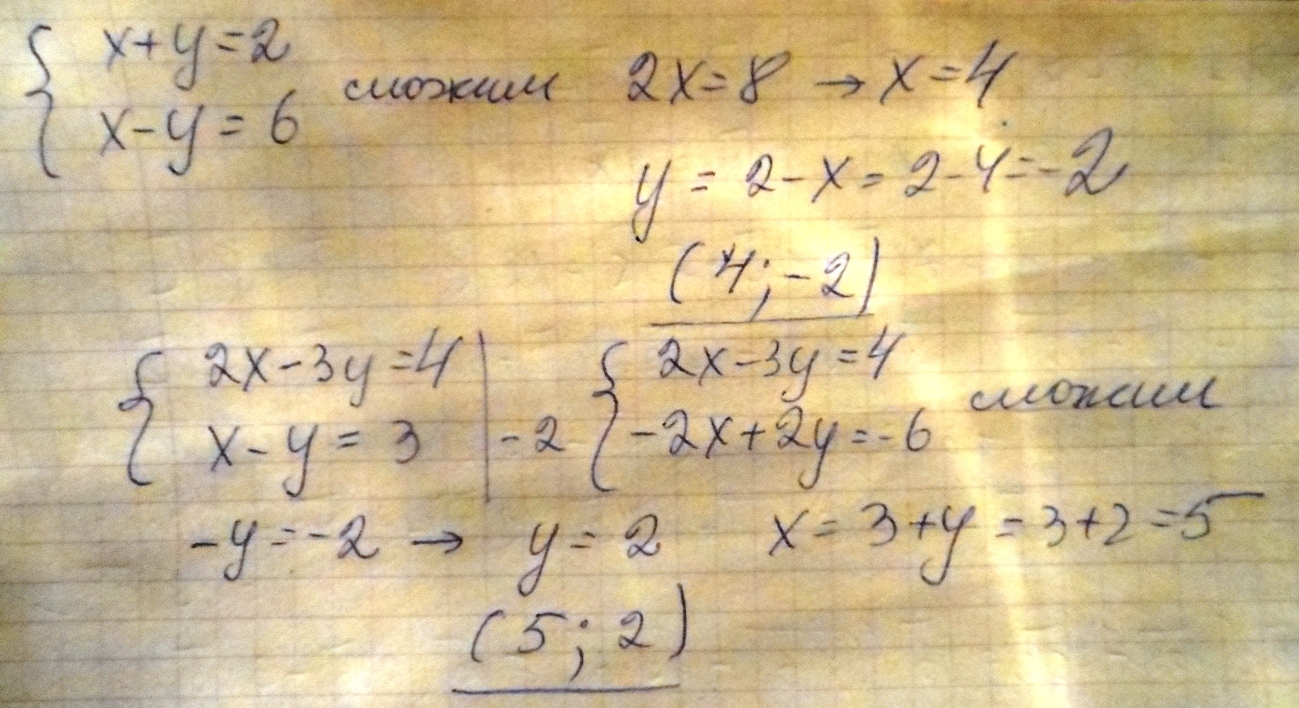 { x+y=2
x-y=6 сложим 2x=8 → x=4
y = 2-x = 2-4=-2
(4;-2)
{ 2x-3y=4 | { 2x-3y=4
x-y=3 | -2 -2x+2y=-6 сложим
-y=-2 → y=2 x=3+y=3+2=5
(5;2)